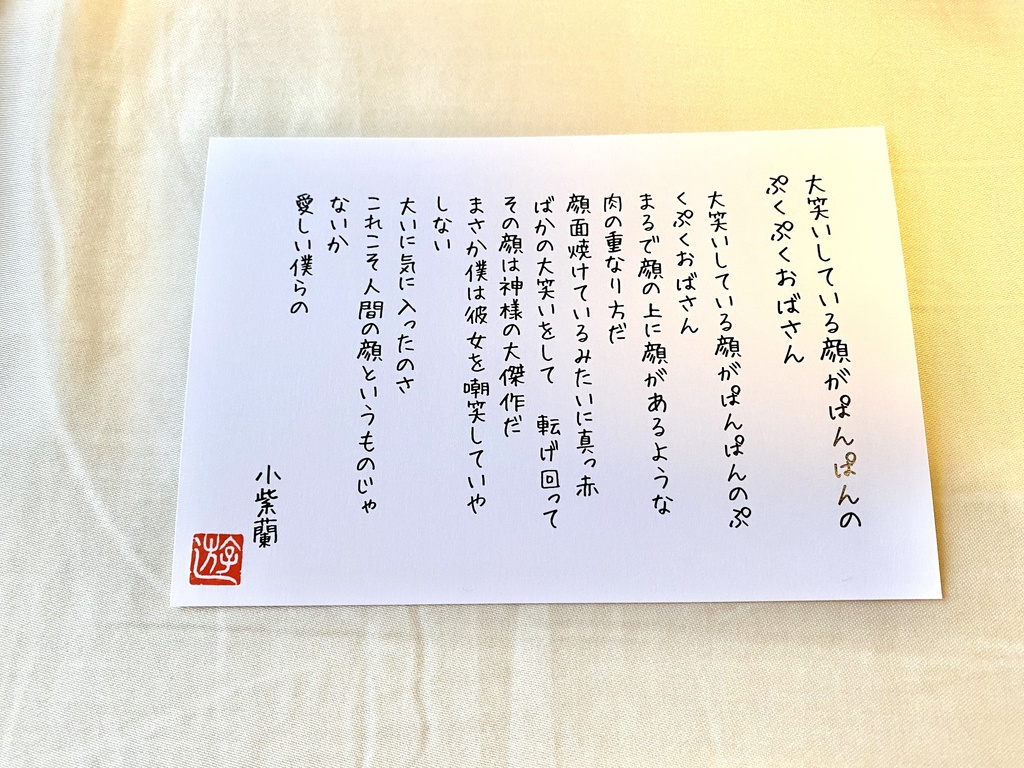 大笑いしている顔がぱんぱんの
ぷくぷくおばさん
大笑いしている顔がぱんぱんのぷ
くぷくおばさん
まるで顔の上に顔があるような
肉の重なり方だ
顔面焼けているみたいに真っ赤
ばかの大笑いをして　転げ回って
その顔は神様の大傑作だ
まさか僕は彼女を嘲笑していや
しない
大いに気に入ったのさ
これこそ人間の顔というものじゃ
ないか
愛しい僕らの
小紫蘭
遊